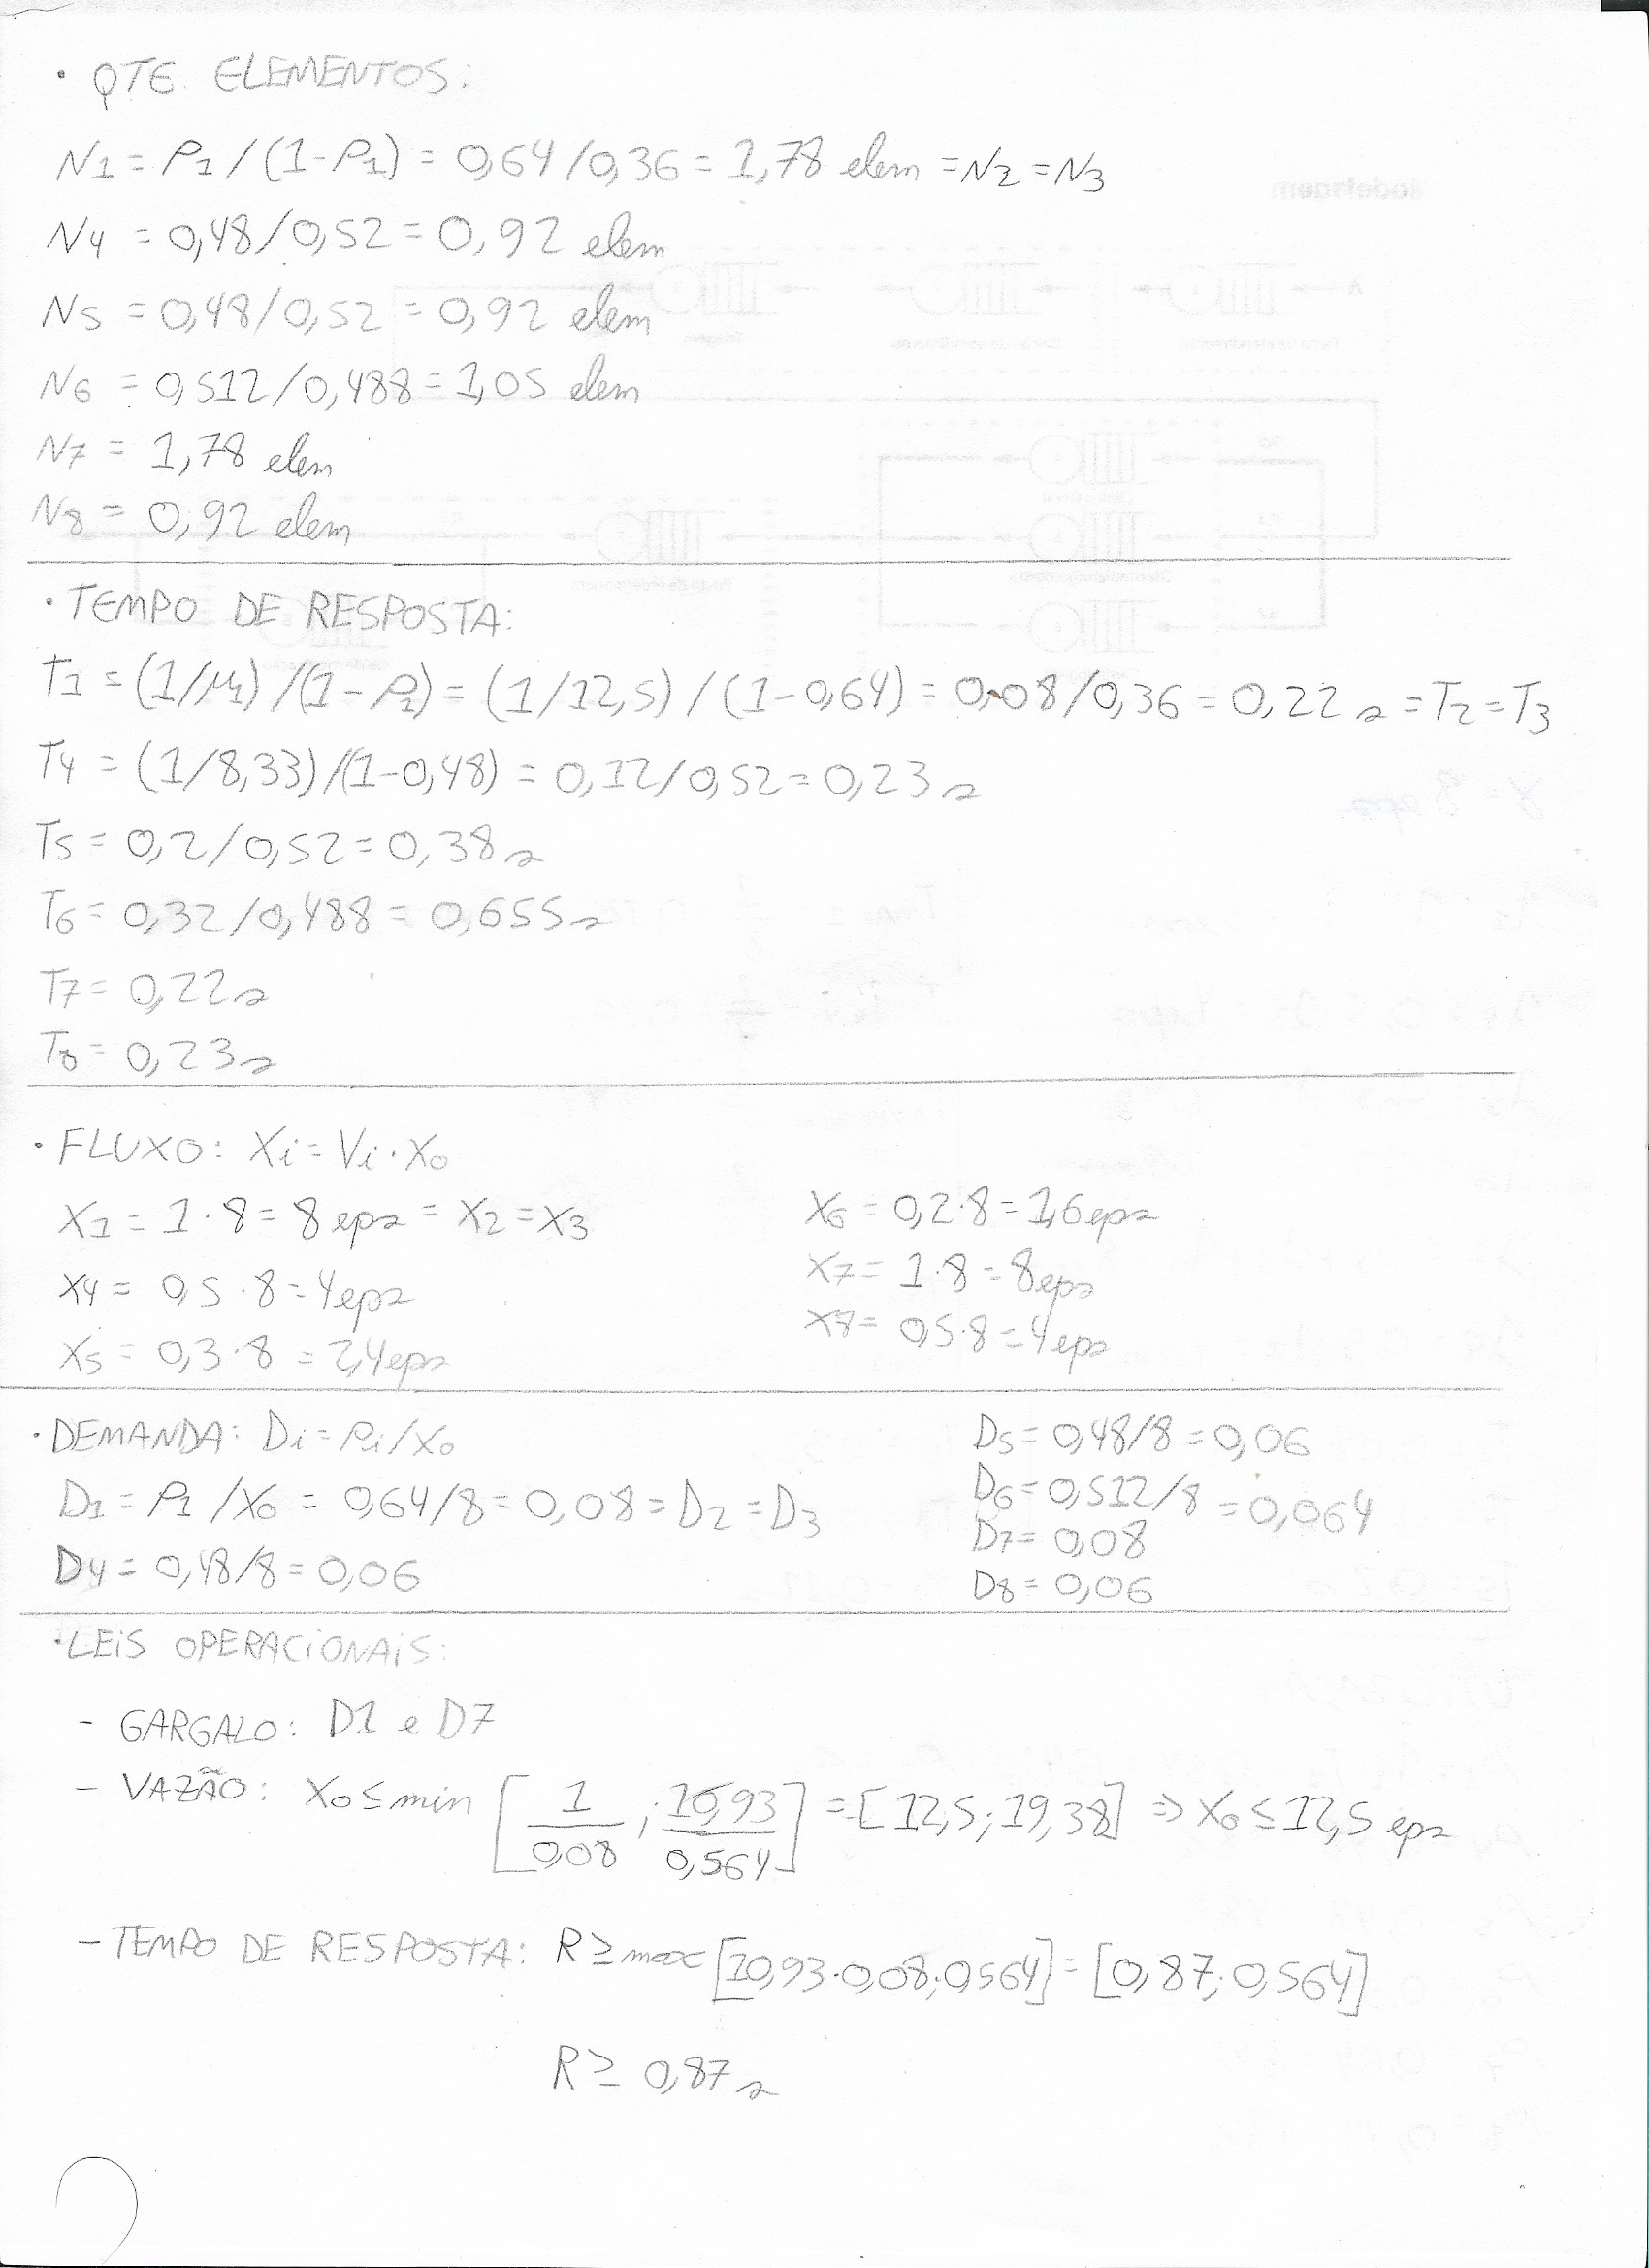 · QTE. ELEMENTOS:
N1 = ρ1 / (1-ρ1) = 0,64/0,36 = 1,78 elem = N2 = N3
N4 = 0,48/0,52 = 0,92 elem
N5 = 0,48/0,52 = 0,92 elem
N6 = 0,512/0,488 = 1,05 elem
N7 = 1,78 elem
N8 = 0,92 elem
· TEMPO DE RESPOSTA:
T1 = (1/μ1) / (1-ρ1) = (1/12,5) / (1-0,64) = 0,08/0,36 = 0,22 s = T2 = T3
T4 = (1/8,33)/(1-0,48) = 0,12/0,52 = 0,23 s
T5 = 0,2/0,52 = 0,38 s
T6 = 0,32/0,488 = 0,655 s
T7 = 0,22 s
T8 = 0,23 s
· FLUXO: Xi = Vi · X0
X1 = 1 · 8 = 8 eps = X2 = X3
X4 = 0,5 · 8 = 4 eps
X5 = 0,3 · 8 = 2,4 eps
X6 = 0,2 · 8 = 1,6 eps
X7 = 1 · 8 = 8 eps
X8 = 0,5 · 8 = 4 eps
· DEMANDA: Di = ρi/X0
D1 = ρ1 / X0 = 0,64/8 = 0,08 = D2 = D3
D4 = 0,48/8 = 0,06
D5 = 0,48/8 = 0,06
D6 = 0,512/8 = 0,064
D7 = 0,08
D8 = 0,06
· LEIS OPERACIONAIS:
- GARGALO: D1 e D7
- VAZÃO: X0 ≤ min [1/0,08 ; 10,93/0,564] = [12,5; 19,38] ⇒ X0 ≤ 12,5 eps
- TEMPO DE RESPOSTA: R ≥ max [10,93 · 0,08; 0,564] = [0,87; 0,564]
R ≥ 0,87 s